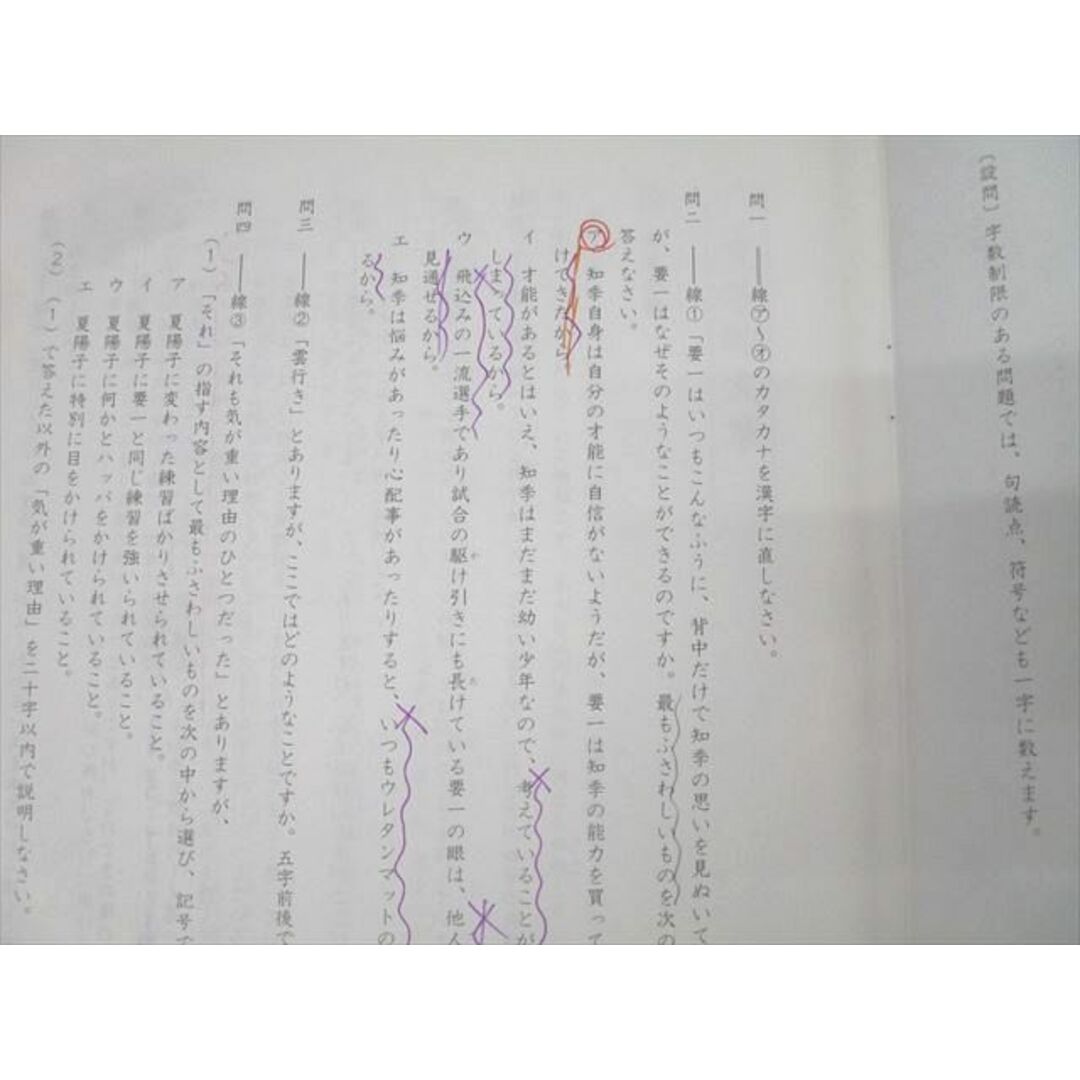 (設問) 字数制限のある問題では、句読点、符号なども一字に数えます。
問一 ――線㋐〜㋔のカタカナを漢字に直しなさい。
問二 ――線①「要一はいつもこんなふうに、背中だけで知季の思いを見ぬいて
が、要一はなぜそのようなことができるのですか。最もふさわしいものを次の
答えなさい。
ア 知季自身は自分の才能に自信がないようだが、要一は知季の能力を買って
けてきたから
イ 才能があるとはいえ、知季はまだまだ幼い少年なので、考えていることが
しまっているから。
ウ 飛込みの一流選手であり試合の駆け引きにも長けている要一の眼は、他人
見通せるから。
エ 知季は悩みがあったり心配事があったりすると、いつもウレタンマットの
るから。
問三 ――線②「雲行き」とありますが、ここではどのようなことですか。五字前後で
問四 ――線③「それも気が重い理由のひとつだった」とありますが、
(1) 「それ」の指す内容として最もふさわしいものを次の中から選び、記号で
ア 夏陽子に変わった練習ばかりさせられていること。
イ 夏陽子に要一と同じ練習を強いられていること。
ウ 夏陽子に何かとハッパをかけられていること。
エ 夏陽子に特別に目をかけられていること。
(2) (1)で答えた以外の「気が重い理由」を二十字以内で説明しなさい。